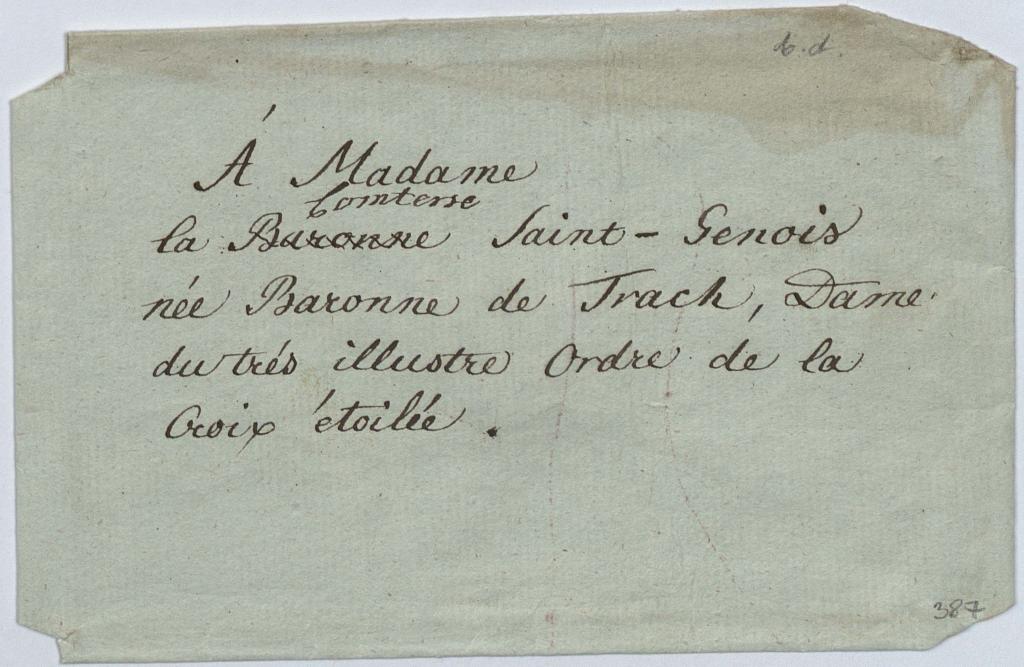 Á Madame
Comtesse
la Baronne Saint-Genois
née Baronne de Trach, Dame
du trés illustre Ordre de la
Croix étoilée.
387